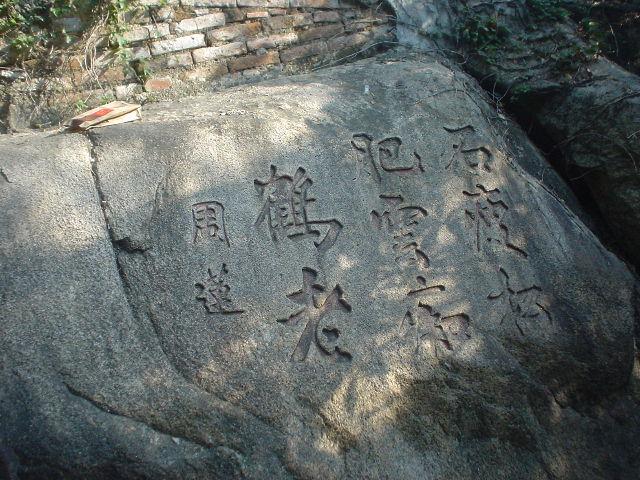 石瘦松
肥雲痴
鶴老
周蓮